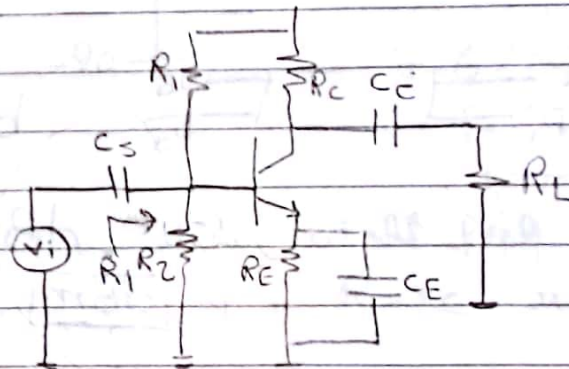 R1 RC CC
CS
RL
Vi
R1 R2 RE CE